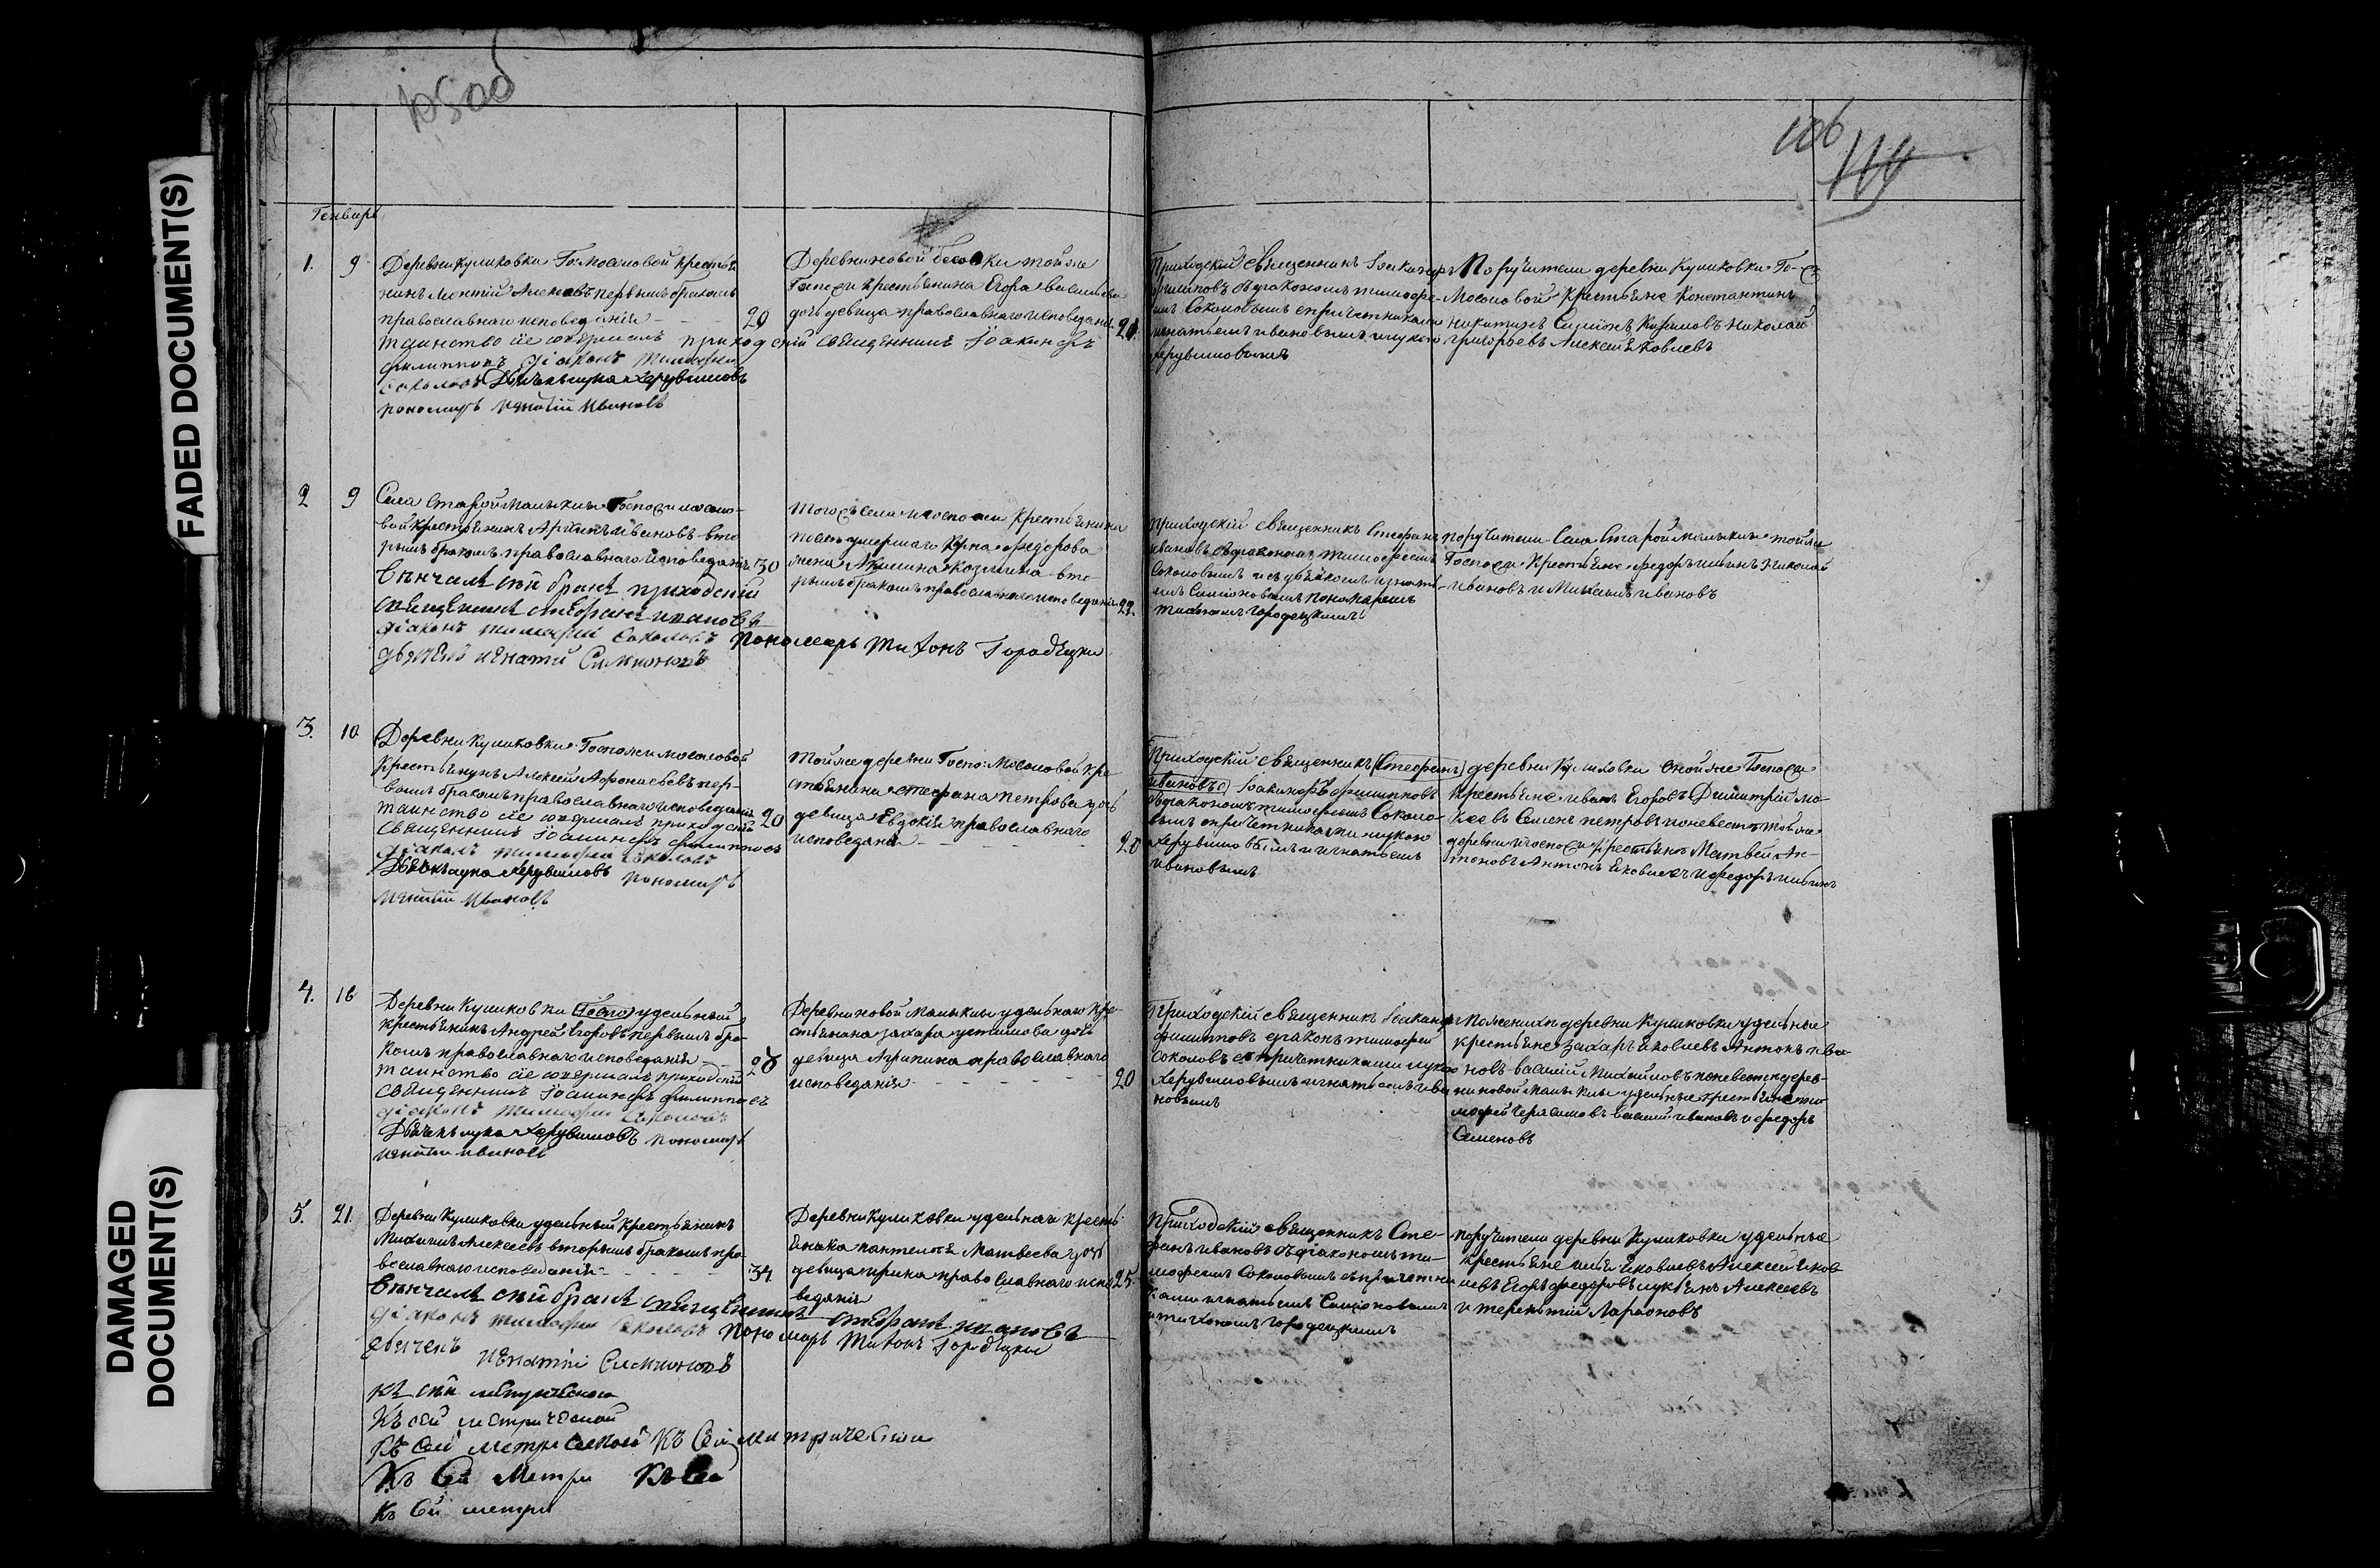 FADED DOCUMENT(S)
DAMAGED
DOCUMENT(S)
106
Генварь
1.
9
Деревни Куликовки Го: Мосоловой крестья
нинъ Алексѣевъ первымъ бракомъ
православнаго исповеданія
29
таинство сіе совершалъ приходскій священникъ Іоакинфъ
филипповъ діаконъ Тимофей
Соколовъ Дьячекъ лука Херувимовъ
пономарь Игнатій Ивановъ
Деревни новой тойже
Госпожи крестьянина Егора Васильева
дочь девица православнаго исповеданія
Приходскій священникъ Іоакинфъ
филиповъ съ діакономъ тимофе-
емъ Соколовымъ с причетниками
игнатьемъ ивановымъ и лукою
Херувимовымъ
Поручители деревни Куликовки Го-жи
Мосоловой крестьяне Константинъ
никитинъ Николай
григорьевъ Алексей Яковлевъ
2
9
Села Старой Госпожи мосоло-
вой крестьянинъ Ивановъ вто
рымъ бракомъ православнаго исповеданія
30
Венчалъ сей бракъ приходскій
священникъ стефанъ ивановъ
діаконъ тимофей Соколовъ пономарь Тихонъ Городецкій
дьячекъ игнатій Симионовъ
Тогожъ села и госпожи крестьянина
умершаго федорова
жена Козмина вто-
рымъ бракомъ православнаго исповеданія
22.
приходскій священникъ Стефанъ
ивановъ съ діакономъ тимофеемъ
Соколовымъ и съ дьячкомъ игнать-
емъ Симионовымъ пономаремъ
тихономъ городецкимъ
поручители Села Старой тойже
Госпожи крестьяне федоръ Николай
ивановъ и Михаилъ ивановъ
3.
10
Деревни Куликовки Госпожи мосоловой
крестьянинъ Алексей Афонасьевъ пер-
вымъ бракомъ православнаго исповеданія
20
таинство сіе совершалъ приходскій
священникъ Іоакинфъ филипповъ
діаконъ тимофей Соколовъ
Дьячекъ лука Херувимовъ пономарь
Игнатій Ивановъ
Тойже деревни Госпо: Мосоловой кре
стьянина стефана петрова дочь
девица Евдокія православнаго
исповеданія
20
Приходскій священникъ (Стефанъ)
ивановъ) Іоакинфъ филипповъ
съ діакономъ тимофеемъ Соколо-
вымъ с причетниками лукою
Херувимовымъ и игнатьемъ
ивановымъ
деревни Куликовки оной же Госпожи
крестьяне иванъ Егоровъ Димитрій
Семенъ петровъ поневесте тойже
деревни и госпожи крестьяне Матвей Ан-
тоновъ Антонъ Яковлевъ и федоръ
4.
16
Деревни Куликовки удельный
крестьянинъ Андрей Егоровъ первымъ бра-
комъ православнаго исповеданія
таинство сіе совершалъ приходскій
священникъ Іоакинфъ филипповъ
діаконъ тимофей Соколовъ
Дьячекъ лука Херувимовъ пономарь
игнатій ивановъ
Деревни новой удельнаго кре-
стьянина захара устимова дочь
девица Агрипина православнаго
исповеданія
20
Приходскій священникъ Іоакинфъ
филипповъ діаконъ тимофей
Соколовъ с причетниками лукою
Херувимовымъ игнатьемъ ива
новымъ
По женихе деревни Куликовки удельные
крестьяне Захаръ Яковлевъ Антонъ ива-
новъ василій Михайловъ поневесте дерев-
ни новой удельные крестьяне тимо
фей Герасимовъ василій ивановъ и федоръ
Семеновъ
5.
21.
Деревни Куликовки удельный крестьянинъ
Михаилъ Алексеевъ вторымъ бракомъ пра-
вославнаго исповеданія
34
Венчалъ сей бракъ священникъ стефанъ ивановъ
діаконъ тимофей Соколовъ пономарь Тихонъ Городецкій
дьячекъ игнатій Симионовъ
Деревни Куликовки удельнаго кресть
янина пантелея Матвеева дочь
девица ирина православнаго испо
веданія
25.
Приходскій священникъ Сте-
фанъ ивановъ съ діакономъ ти-
мофеемъ Соколовымъ съ причетни
ками игнатьемъ Симионовымъ
и тихономъ городецкимъ
поручители деревни Куликовки удельные
крестьяне илья Яковлевъ Алексей Яков
левъ Егоръ федоровъ лукьянъ Алексеевъ
и терентій Ларионовъ
къ сей метрической
Къ сей метрической
Къ сей метрической Къ Сей метрической
Къ Сей Метри Къ Сей
Къ Сей метри